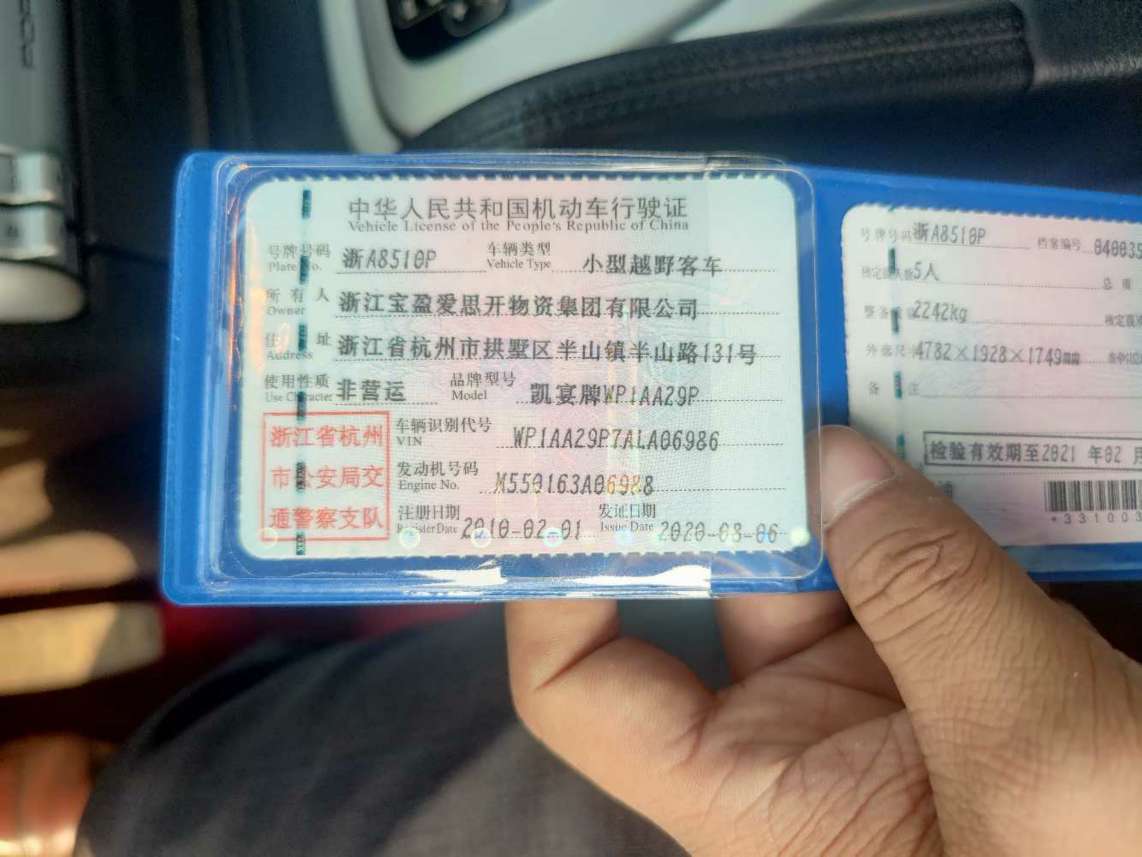 中华人民共和国机动车行驶证
Vehicle License of the People's Republic of China
号牌号码 浙A8510P 车辆类型 小型越野客车
Plate No. Vehicle Type
所有人 浙江宝盈爱思开物资集团有限公司
Owner
住址 浙江省杭州市拱墅区半山镇半山路131号
Address
使用性质 非营运 品牌型号 凯宴牌WP1AA29P
Use Character Model
浙江省杭州
市公安局交
通警察支队
车辆识别代号 WP1AA29P7ALA06986
VIN
发动机号码 M550163A06988
Engine No.
注册日期 2010-02-01 发证日期 2020-08-06
Register Date Issue Date
号牌号码 浙A8510P 档案编号 040035
核定载人数 5人 总质
整备质量 2242kg 核定载质
外廓尺寸 4782×1928×1749mm
备注
检验有效期至2021 年02 月
*33100